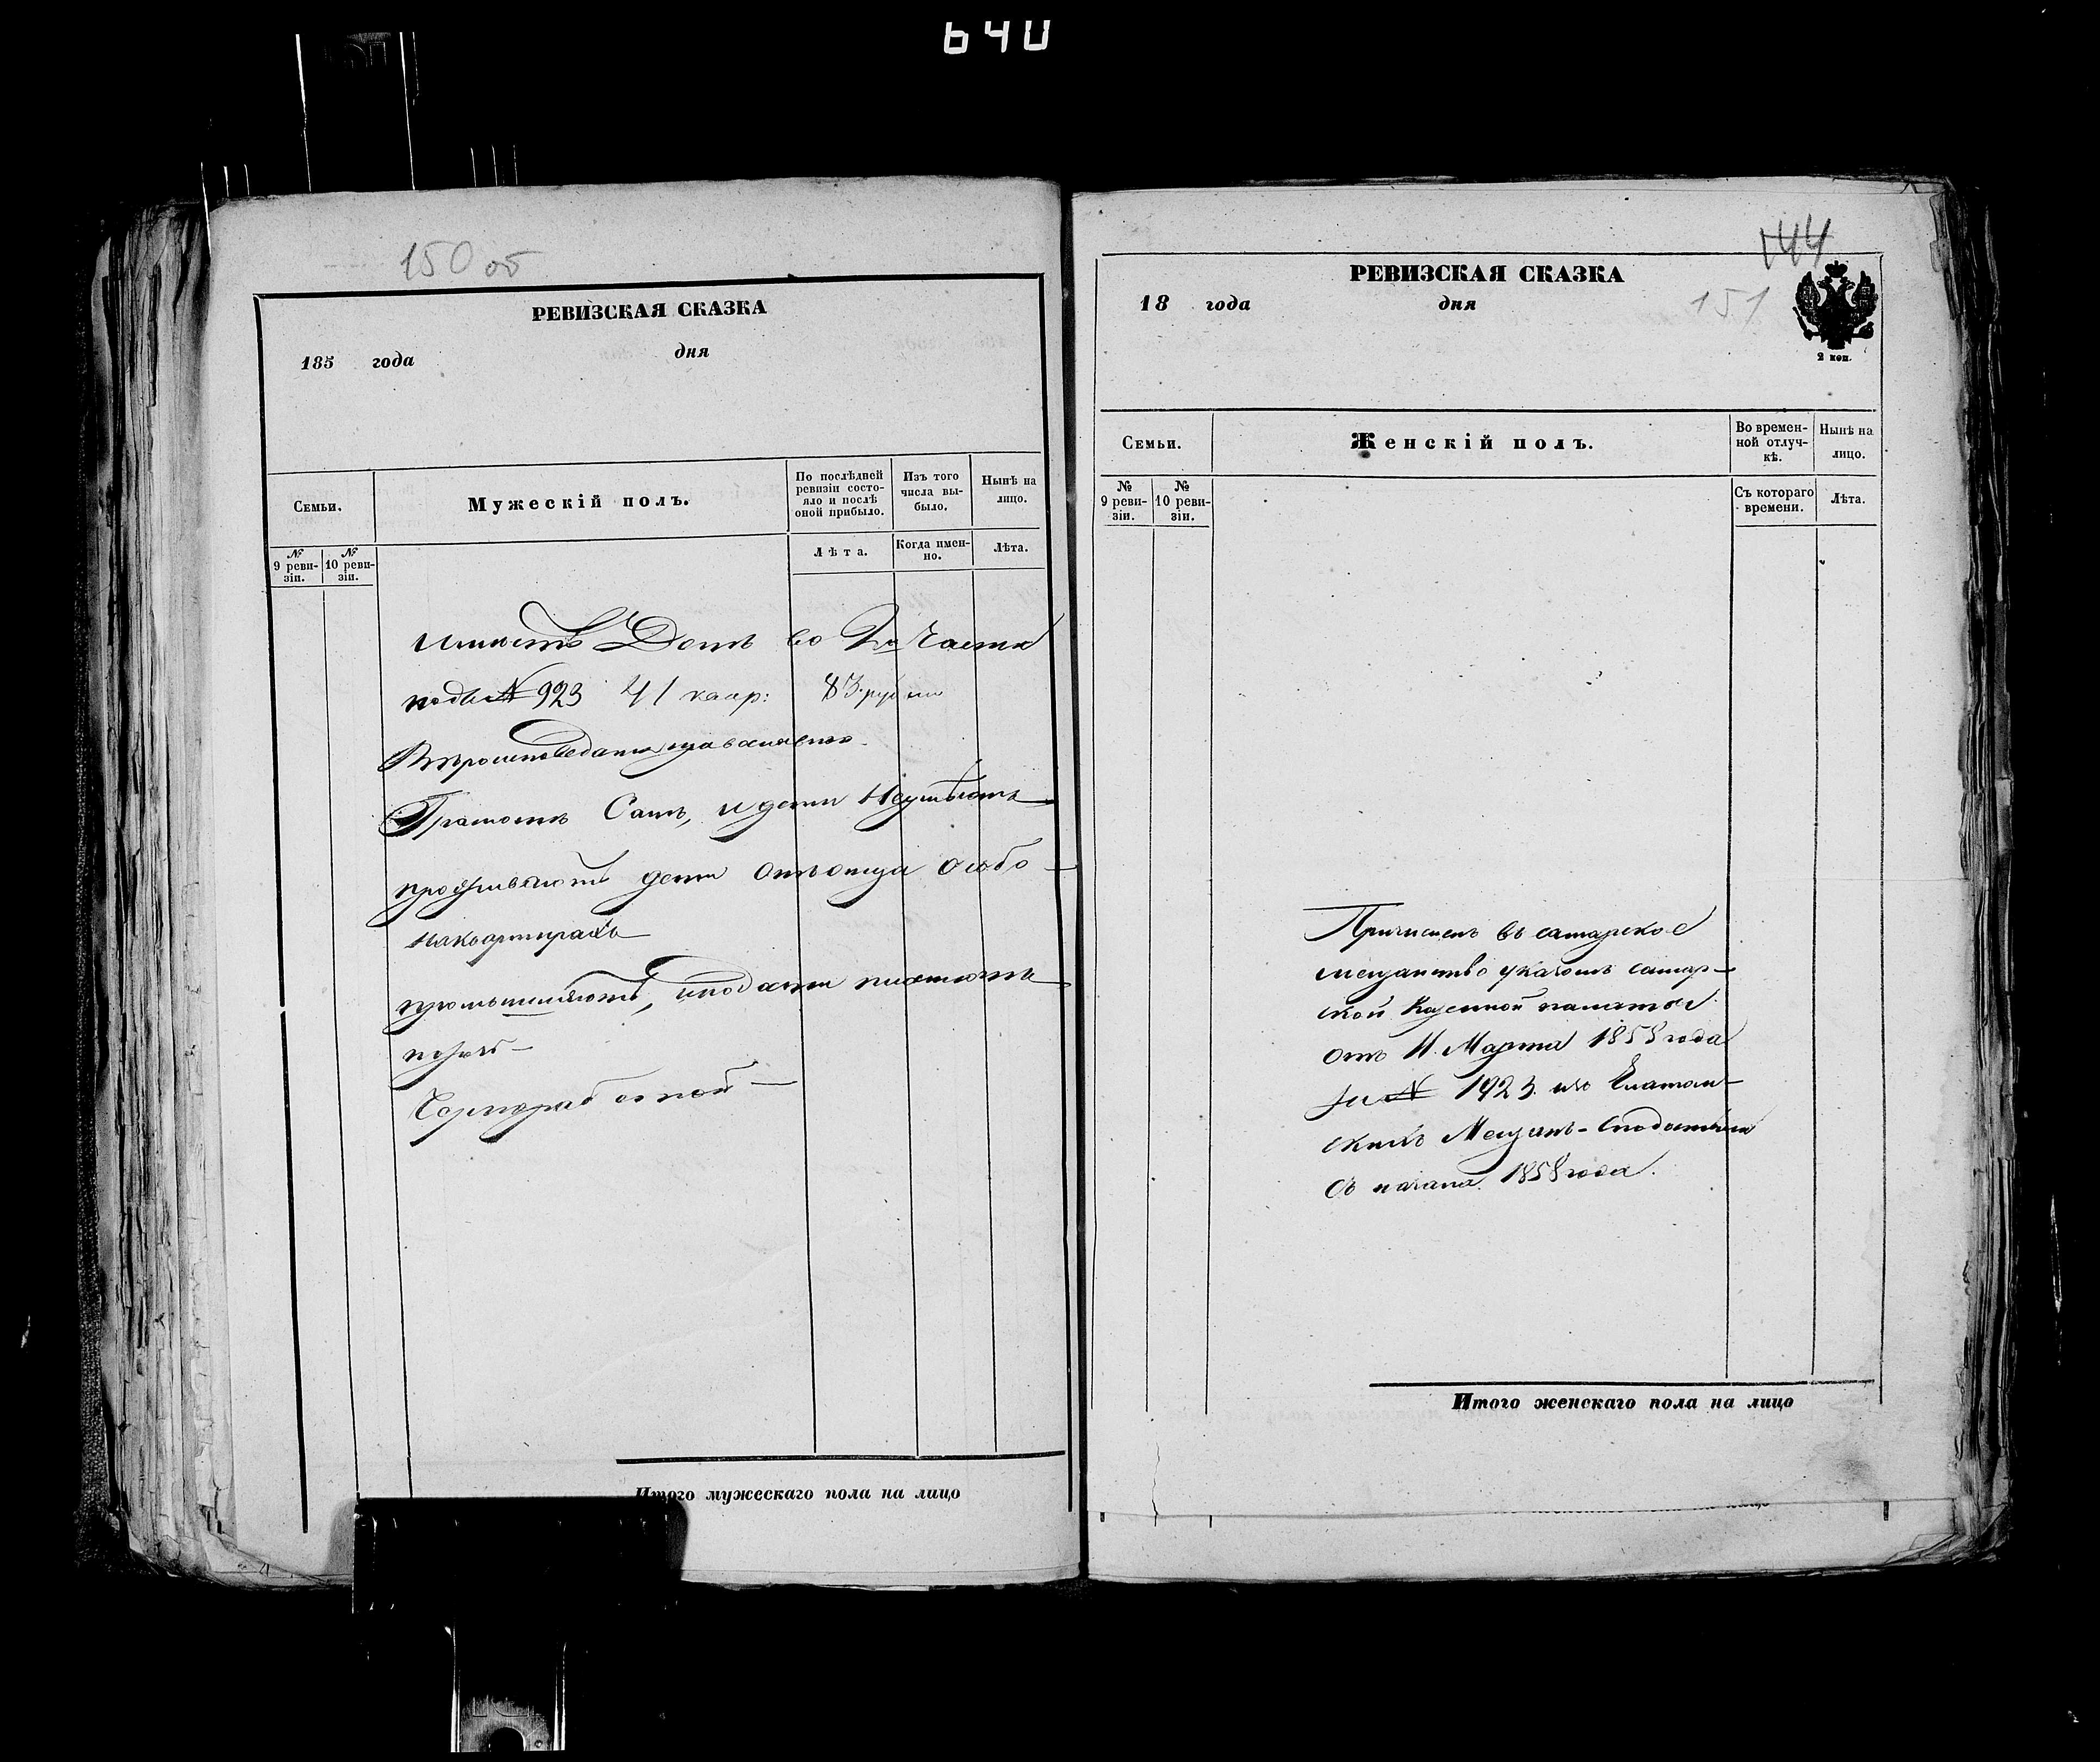 640
150 об
РЕВИЗСКАЯ СКАЗКА
185 года дня
Семьи.
Мужескій полъ.
По послѣдней ревизіи состояло и послѣ оной прибыло.
Изъ того числа выбыло.
Нынѣ на лицо.
№ 9 ревизіи.
№ 10 ревизіи.
Лѣта.
Когда именно.
Лѣта.
имѣетъ Домъ во 2й части
подъ № 923 41 квар: 83 рубли
Вѣроисповеданія православнаго
Грамотѣ Самъ, и дети Неумѣютъ
проживаютъ дети отъ отца особо
на квартирахъ
промышляютъ, и подати платятъ
Чернорабочей
Итого мужескаго пола на лицо
144
РЕВИЗСКАЯ СКАЗКА
18 года дня
151
2 коп.
Семьи.
Женскій полъ.
Во временной отлучкѣ.
Нынѣ на лицо.
№ 9 ревизіи.
№ 10 ревизіи.
Съ котораго времени.
Лѣта.
Причисленъ въ самарское
мещанство указомъ самар-
ской Казенной палаты
отъ 11 Марта 1858 года
за № 1923 изъ Елатом-
скихъ Мещанъ
съ начала 1858 года.
Итого женскаго пола на лицо